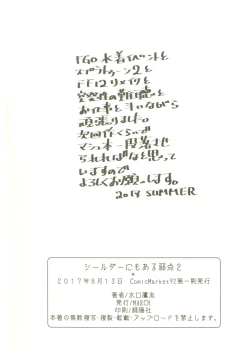 FGO水着イベントと
スプラトゥーン2と
FF12リメイクと
突発性の難聴と
お仕事を手いながら
頑張りました。
次回作くらいで
マシュ本一段落させ
られればなと思って
いますので
よろしくお願いします。
2017 SUMMER
シールダーにもある弱点2
2017年8月13日 ComicMarket92第一刷発行
著者/水口鷹志
発行/MARCH
印刷/緑陽社
本書の無断複写・複製・転載・アップロードを禁止します。